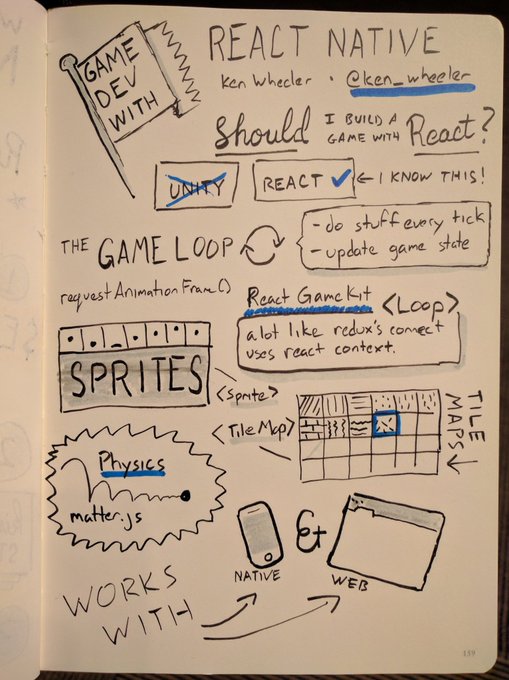 GAME
DEV
WITH
REACT NATIVE
Ken Wheeler · @ken_wheeler
Should I BUILD A
GAME WITH React?
UNITY
REACT ✓ ← I KNOW THIS!
THE GAME LOOP
- do stuff every tick
- update game state
requestAnimationFrame()
React GameKit <Loop>
a lot like redux's connect
uses react context.
SPRITES
<Sprite>
<TileMap>
TILE
MAPS →
Physics
matter.js
NATIVE
&
WEB
WORKS
WITH
159